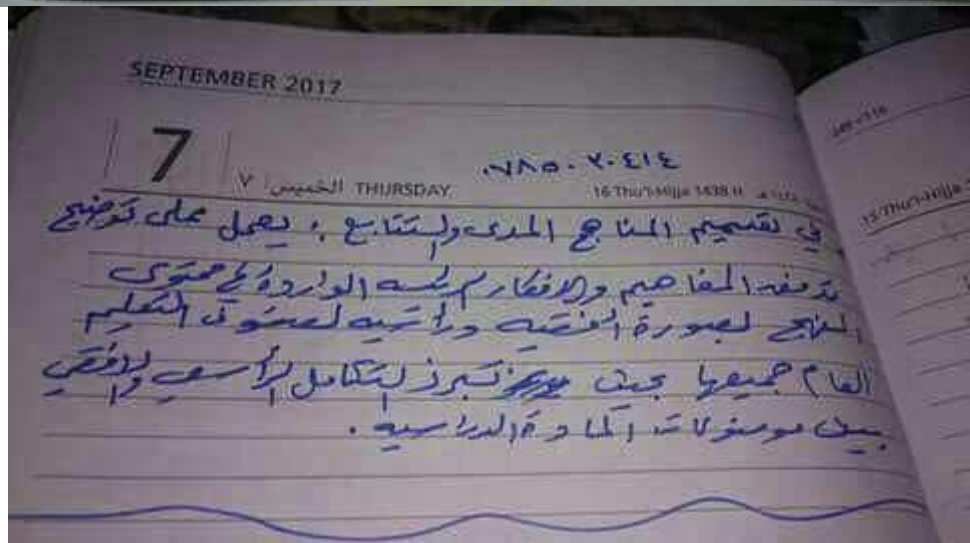 SEPTEMBER 2017
7
٧ الخميس THURSDAY
16 Thu'l-Hijja 1438 H
٠٧٨٥٠٢٠٤١٤
في تصميم المناهج المدى والتتابع : يعمل على توضيح
تدفق المفاهيم والافكار الرئيسه الواردة في محتوى
المنهج بصورة افقيه ورأسيه لصفوف التعليم
العام جميعها بحيث تبرز التكامل الرأسي والافقي
بين موضوعات المادة الدراسيه .
15 Thu'l-Hijja